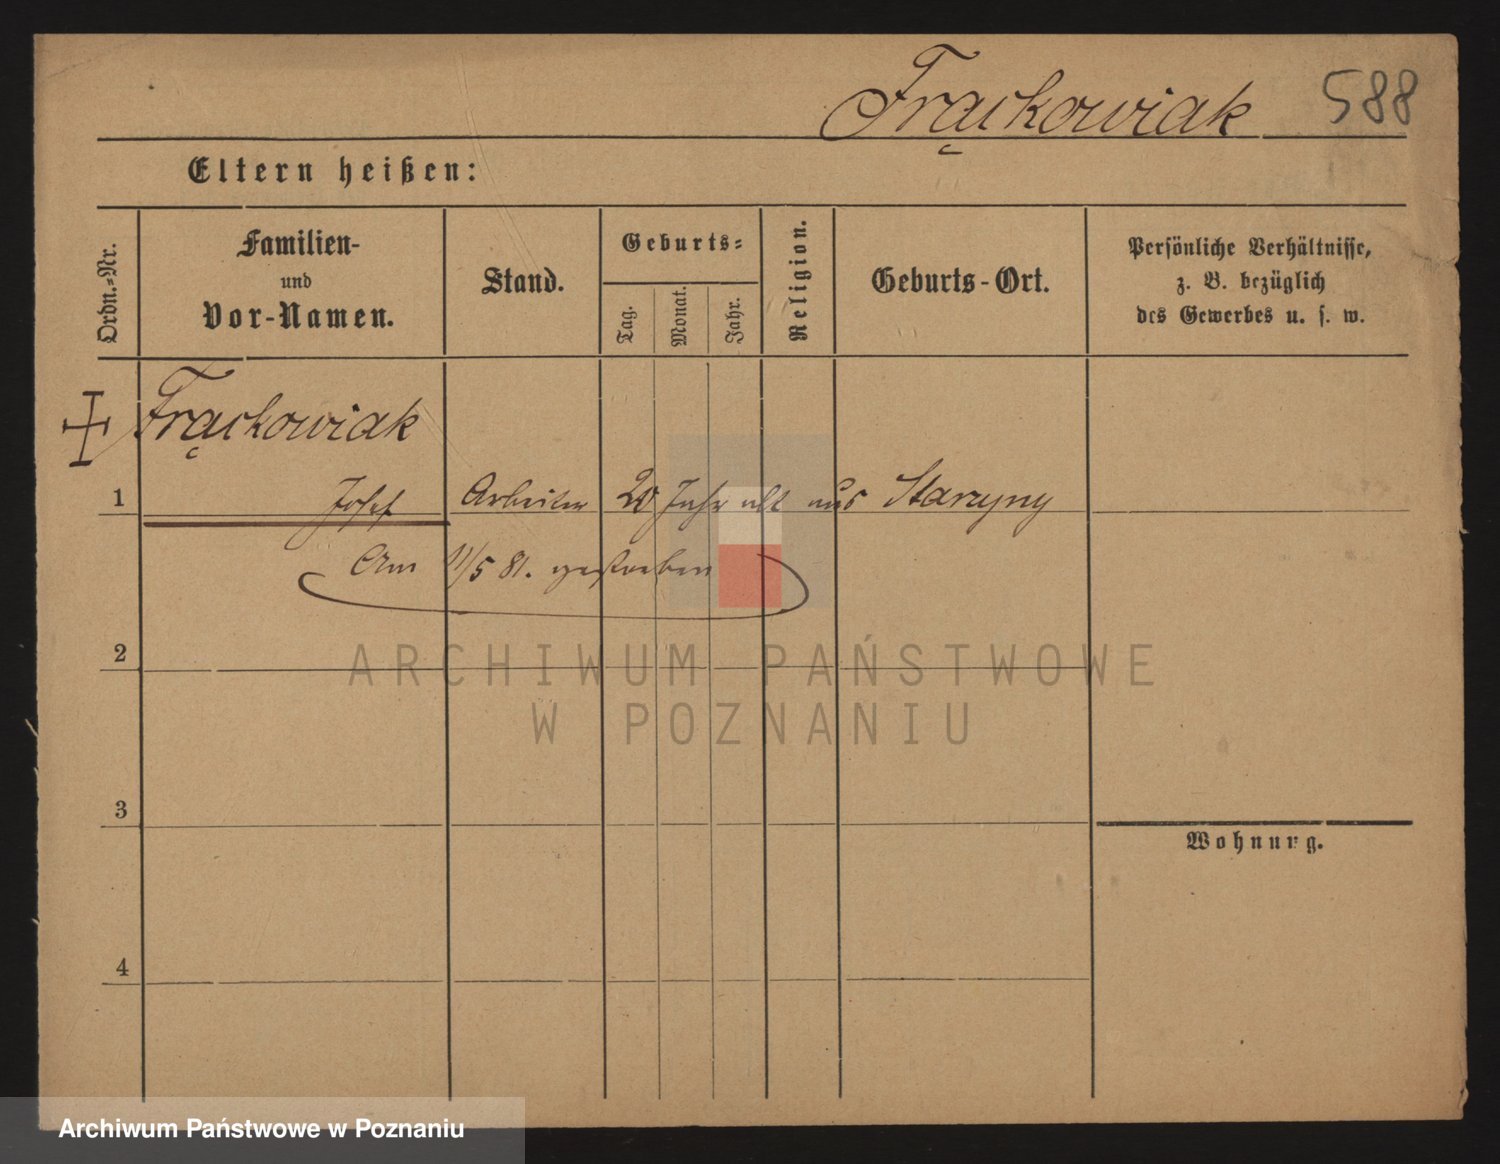 Frąckowiak 588
Eltern heißen:
Ordn.-Nr.
Familien-
und
Vor-Namen.
Stand.
Geburts-
Tag.
Monat.
Jahr.
Religion.
Geburts-Ort.
Persönliche Verhältnisse,
z. B. bezüglich
des Gewerbes u. s. w.
Frąckowiak
1 Josef Arbeiter 20 Jahr alt aus Starzyny
Am 11/5 81. gestorben
2
ARCHIWUM PAŃSTWOWE
W POZNANIU
3
Wohnung.
4
Archiwum Państwowe w Poznaniu